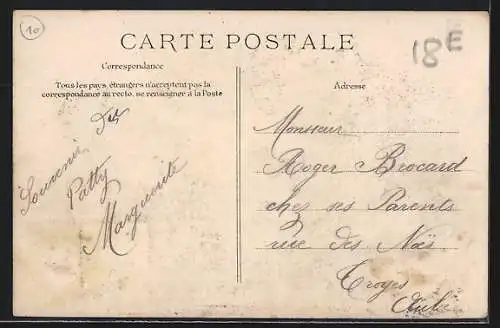 10
CARTE POSTALE
18E
Correspondance
Tous les pays étrangers n'acceptent pas la
correspondance au recto, se renseigner à la Poste
Adresse
Souvenir
Patty
Marguerite
Monsieur
Roger Brocard
chez ses Parents
rue des Noës
Troyes
Aube